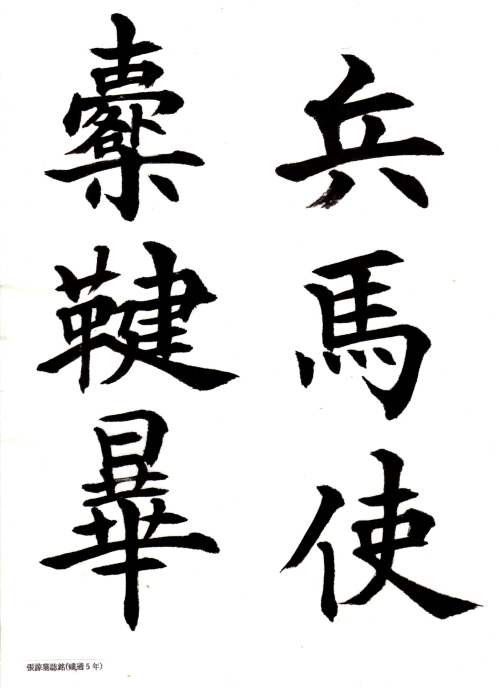 兵馬使
櫜鞬畢
張諒墓誌銘(咸通5年)